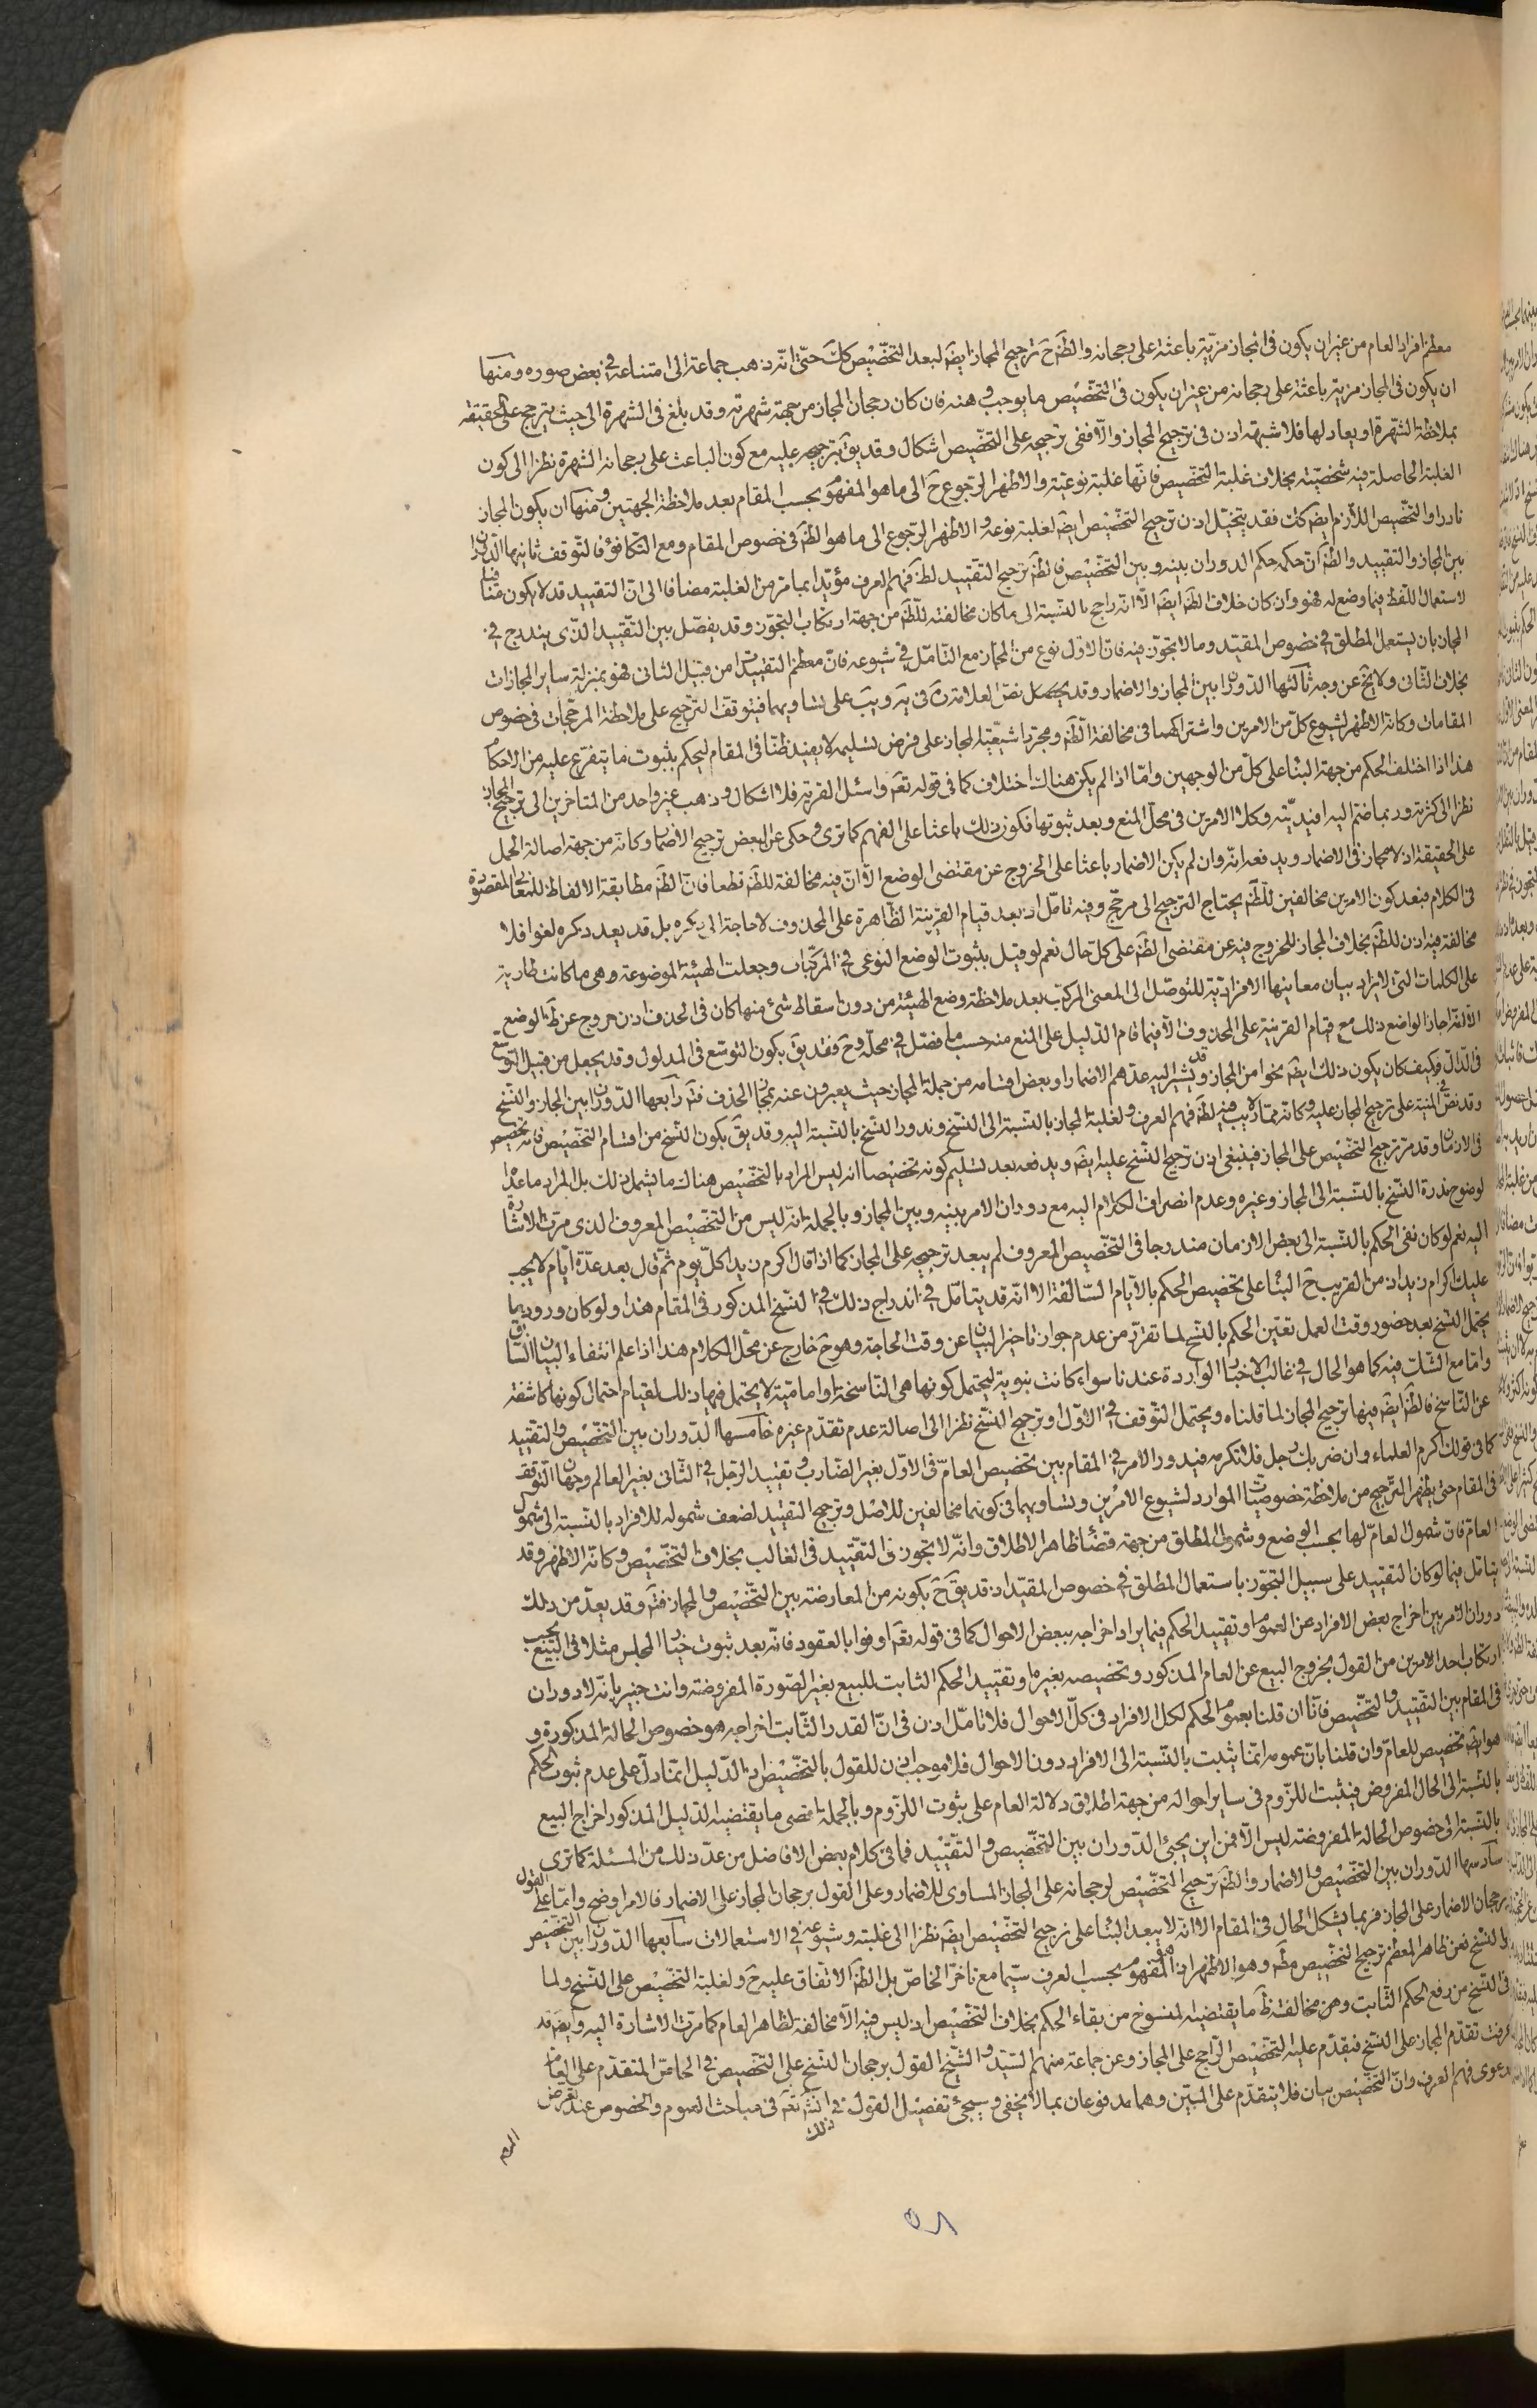 معظم افراد العام من غير ان يكون فى المجاز مزيّة باعثة على رجحانه والظَمَ حَ ترجيح المجاز ايضَهَ لبعد التخصيص كَكَ حتّى انّه ذهب جماعة الى امتناعه فى بعض صوره ومنها
ان يكون فى المجاز مزية باعثة على رجحانه من غير ان يكون فى التخصيص ما يوجب وهنه فان كان رجحان المجاز من جهة شهرته وقد بلغ فى الشهرة الى حيث يترجح على الحقيقة
بملاحظة الشهرة او يعادلها فلا شبهة اذن فى ترجيح المجاز والّا ففى ترجيحه على التخصيص اشكال وقد يقَ بترجيحه عليه مع كون الباعث على رجحانه الشهرة نظرا الى كون
الغلبة الحاصلة فيه شخصيّة بخلاف غلبة التخصيص فانّها غلبة نوعيّة والاظهر الرّجوع حَ الى ما هو المفهوم بحسب المقام بعد ملاحظة الجهتين ومنها ان يكون المجاز
نادرا والتخصيص اللازم ايضَهَ كَكَ فقد يتخيّل اذن ترجيح التخصيص ايضَهَ لغلبة نوعه والاظهر الرّجوع الى ما هو الظَهَ فى خصوص المقام ومع التكافؤ فالتوقف ثانيها الدّوران
بين المجاز والتقييد والظَهَ انّ حكمه حكم الدوران بينه وبين التخصيص فالظَهَ ترجيح التّقييد لظَهَ فهم العرف مؤيّدا بما مر من الغلبة مضافا الى انّ التقييد قد لا يكون منافيا
لاستعمال اللّفظ فيما وضع له فهو وان كان خلاف الظَهَ ايضَهَ الّا انّه راجح بالنسبة الى ما كان مخالفته للظَهَ من جهة ارتكاب التجوّز وقد يفصّل بين التّقييد الذّى يندرج فى
المجاز بان يستعمل المطلق فى خصوص المقيّد وما لا تجوّز فيه فانّ الاوّل نوع من المجاز مع التامّل فى شيوعه فانّ معظم التقييدات من قبيل الثانى فهو بمنزلة ساير المجازات
بخلاف الثّانى ولا يخَ عن وجه ثالثها الدّوران بين المجاز والاضمار وقد نصّ العلامة رَهَ فى يَهَ ويبَ على تساويهما فيتوقف التّرجيح على ملاحظة المرجّحات فى خصوص
المقامات وكانه الاظهر لشيوع كلّ من الامرين واشتراكهما فى مخالفة الظَهَ ومجرّد اشيعيّة المجاز على فرض تسليمه لا يفيد ظنّا فى المقام ليحكم بثبوت ما يتفرّع عليه من الاحكام
هذا اذا اختلف الحكم من جهة البناء على كلّ من الوجهين وامّا اذا لم يكن هناك اختلاف كما فى قوله تعَهَ واسئل القرية فلا اشكال وذهب غير واحد من المتاخرين الى ترجيح المجاز
نظرا الى كثرته وربما ضمّ اليه افيديّته وكلا الامرين فى محلّ المنع وبعد ثبوتها فكون ذلك باعثا على الفهم كما ترى وحكى عن البعض ترجيح الاضمار وكانه من جهة اصالة الحمل
على الحقيقة اذ لا مجاز فى الاضمار ويدفعه انّه وان لم يكن الاضمار باعثا على الخروج عن مقتضى الوضع الّا انّ فيه مخالفة للظَهَ قطعا فانّ الظَهَ مطابقة الالفاظ للمعانى المقصودة
فى الكلام فبعد كون الامرين مخالفين للظَهَ يحتاج الترجيح الى مرجّح وفيه تامّل اذ بعد قيام القرينة الظّاهرة على المحذوف لا حاجة الى ذكره بل قد يعد ذكره لغوا فلا
مخالفة فيه اذن للظَهَ بخلاف المجاز للخروج فيه عن مقتضى الظَهَ على كلّ حال نعم لو قيل بثبوت الوضع النوعى فى المركّبات وجعلت الهيئة الموضوعة هى ما كانت طارية
على الكلمات التى لا يراد بيان معانيها الافراديّة للتوصّل الى المعنى المركّب بعد ملاحظة وضع الهيئة من دون اسقاط شئ منها كان فى الحذف اذن خروج عن ظَهَ الوضع
الا انّه اجاز الواضع ذلك مع قيام القرينة على المحذوف الّا فيما قام الدّليل على المنع منه حسب ما فصّل فى محلّه وحَ فقد يقَ بكون التوسّع فى المدلول وقد يجعل من قبيل التوسّع
فى الدّال وكيف كان يكون ذلك ايضَهَ نحوا من المجاز وقد يشير اليه عدّهم الاضمار او بعض اقسامه من جملة المجاز حيث يعبرون عنه بمجاز الحذف فتَهَ رابعها الدّوران بين المجاز والنّسخ
وقد نصّ فى المنية على ترجيح المجاز عليه وكانه ممّا لا ريب فيه لظَهَ فهم العرف ولغلبة المجاز بالنّسبة الى النّسخ وندور النّسخ بالنّسبة اليه وقد يقَ بكون النّسخ من اقسام التخصيص فانّه تخصيص
فى الازمان وقد مرّ ترجيح التخصيص على المجاز فينبغى اذن ترجيح النّسخ عليه ايضَهَ ويدفعه بعد تسليم كونه تخصيصا انه ليس المراد بالتّخصيص هناك ما يشمل ذلك بل المراد ما عدا
لوضوح ندرة النّسخ بالنّسبة الى المجاز وغيره وعدم انصراف الكلام اليه مع دوران الامر بينه وبين المجاز وبالجملة انّه ليس من التخصيص المعروف الذى مرّت الاشارة
اليه نعم لو كان نفى الحكم بالنّسبة الى بعض الازمان مندرجا فى التخصيص المعروف لم يبعد ترجيحه على المجاز كما اذا قال اكرم زيدا كلّ يوم ثمّ قال بعد عدّة ايّام لا يجب
عليك اكرام زيد اذ من القريب حَ البناء على تخصيص الحكم بالايام السّالفة الا انّه قد يتامّل فى اندراج ذلك فى النّسخ المذكور فى المقام هذا ولو كان ورود ما
يحتمل النّسخ بعد حضور وقت العمل تعيّن الحكم بالنّسخ لما تقرّر من عدم جواز تاخير البيان عن وقت الحاجة وهو حَ خارج عن محلّ الكلام هذا اذا علم انتفاء البيان السّابق
وامّا مع الشّك فيه كما هو الحال فى غالب الاخبار الواردة عندنا سواء كانت نبوية ليحتمل كونها هى النّاسخة او امامية لا يحتمل فيها ذلك لقيام احتمال كونها كاشفة
عن النّاسخ فالظَهَ ايضَهَ فيها ترجيح المجاز لما قلناه ويحتمل التّوقف فى الاوّل او ترجيح النّسخ نظرا الى اصالة عدم تقدّم غيره خامسها الدّوران بين التّخصيص والتقييد
كما فى قولك اكرم العلماء وان ضربك رجل فلا تكرمه فيدور الامر فى المقام بين تخصيص العامّ فى الاوّل بغير الضّارب وتقييد الرّجل فى الثّانى بغير العالم وجهان التّوقف
فى المقام حتى يظهر التّرجيح من ملاحظة خصوصيّات الموارد لشيوع الامرين وتساويهما فى كونهما مخالفين للاصل وترجيح التقييد لضعف شموله للافراد بالنّسبة الى شمول
العامّ فانّ شمول العامّ لها بحسب الوضع وشمول المطلق من جهة قضاء ظاهر الاطلاق وانّه لا تجوز فى التقييد فى الغالب بخلاف التّخصيص وكانّه الاظهر وقد
يتامّل فيما لو كان التقييد على سبيل التجوّز باستعمال المطلق فى خصوص المقيّد اذ قد يقَ حَ بكونه من المعارضة بين التّخصيص والمجاز فتَهَ وقد يعدّ من ذلك
دوران الامر بين اخراج بعض الافراد عن العموم او تقييد الحكم فيما يراد اخراجه ببعض الاحوال كما فى قوله تعَهَ اوفوا بالعقود فانّه بعد ثبوت خيار المجلس مثلا فى البيع يجب
ارتكاب احد الامرين من القول بخروج البيع عن العام المذكور وتخصيصه بغيره او تقييد الحكم الثابت للبيع بغير الصّورة المفروضة وانت خبير بانّه لا دوران
فى المقام بين التّقييد والتخصيص فانّا ان قلنا بعموم الحكم لكل الافراد فى كلّ الاحوال فلا تامّل اذن فى انّ القدر الثّابت اخراجه هو خصوص الحالة المذكورة و
هو ايضَهَ تخصيص للعامّ وان قلنا بانّ عمومه انّما يثبت بالنّسبة الى الافراد دون الاحوال فلا موجب اذن للقول بالتّخصيص اذ الدّليل انّما دلّ على عدم ثبوت الحكم
بالنّسبة الى الحال المفروض فيثبت اللّزوم فى ساير احواله من جهة اطلاق دلالة العام على ثبوت اللزوم وبالجملة اقصى ما يقتضيه الدّليل المذكور اخراج البيع
بالنّسبة الى خصوص الحالة المفروضة ليس الّا فمن اين يجئ الدّوران بين التخصيص والتقييد فما فى كلام بعض الافاضل من عدّ ذلك من المسئلة كما ترى
سادسها الدّوران بين التّخصيص والاضمار والظَهَ ترجيح التّخصيص لرجحانه على المجاز المساوى للاضمار وعلى القول برجحان المجاز على الاضمار فالامر اوضح وامّا على القول
برجحان الاضمار على المجاز فربما يشكل الحال فى المقام الّا انّه لا يبعد البناء على ترجيح التّخصيص ايضَهَ نظرا الى غلبته وشيوعه فى الاستعمالات سابعها الدّوران بين التّخصيص
والنّسخ فعن ظاهر المعظم ترجيح التّخصيص مطَهَ وهو الاظهر اذ هو المفهوم بحسب العرف سيّما مع تاخّر الخاصّ بل الظَهَ الاتّفاق عليه حَ ولغلبة التّخصيص على النّسخ ولما
فى النّسخ من رفع الحكم الثّابت وهو مخالفة ظَهَ ما يقتضيه المنسوخ من بقاء الحكم بخلاف التّخصيص اذ ليس فيه الّا مخالفة لظاهر العام كما مرّت الاشارة اليه وايضَهَ قد
عرفت تقدّم المجاز على النّسخ فيقدّم عليه التّخصيص الرّاجح على المجاز وعن جماعة منهم السّيّد والشّيخ القول برجحان النّسخ على التّخصيص فى الخاصّ المتقدّم على العامّ
لدعوى فهم العرف وانّ التّخصيص بيان فلا يتقدّم على المبيّن وهما مدفوعان بما لا يخفى وسيجئ تفصيل القول فى ذلك انشَهَ تعَهَ فى مباحث العموم والخصوص عند تعرض
المصَ
٥٨